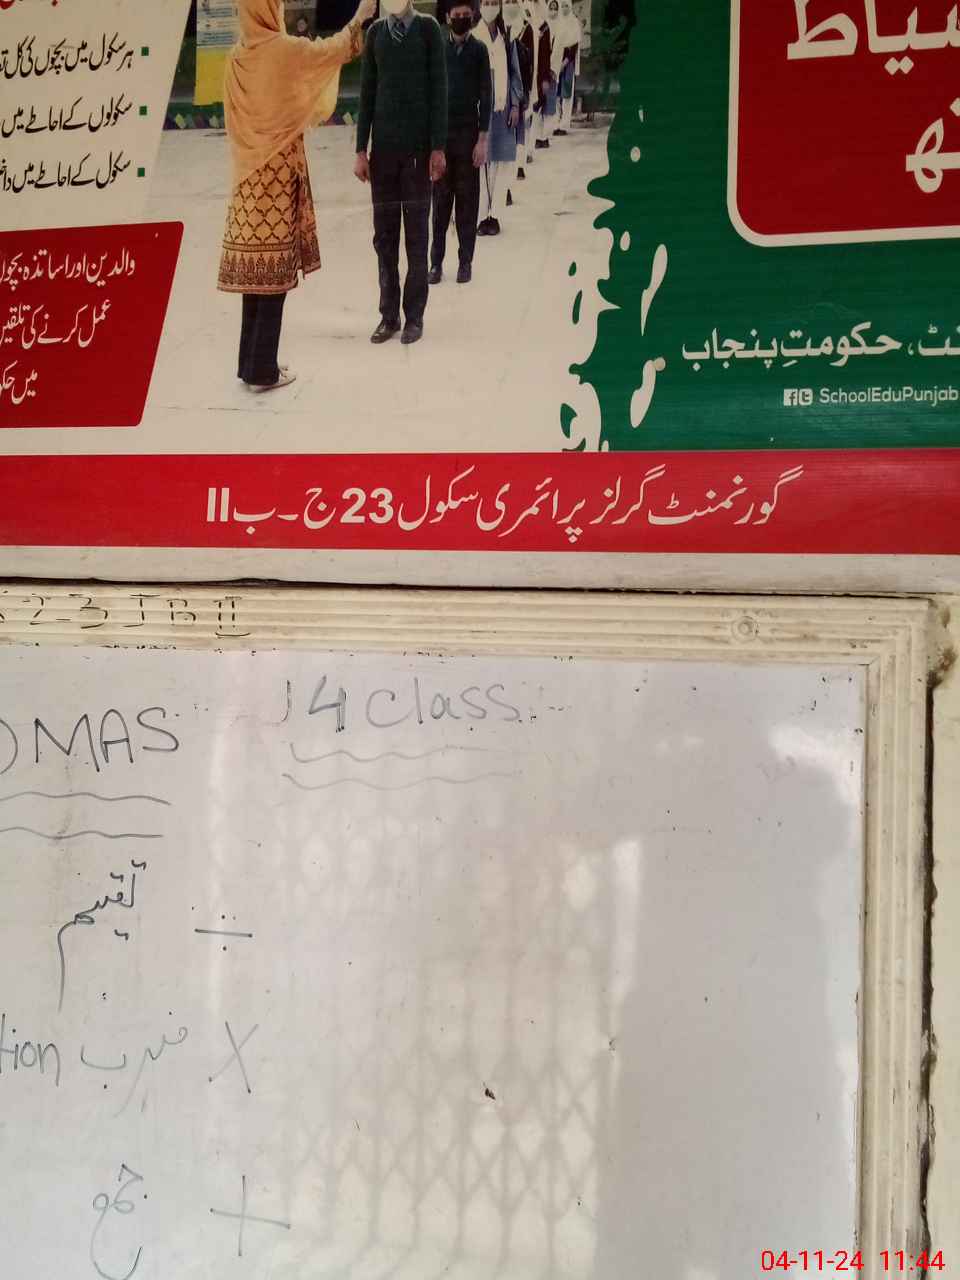 سیاط
تھ
ہر سکول میں بچوں کی کل
سکولوں کے احاطے میں
سکول کے احاطے میں
والدین اور اساتذہ بچوں
عمل کرنے کی تلقین
میں
نٹ، حکومتِ پنجاب
SchoolEduPunjab
گورنمنٹ گرلز پرائمری سکول 23 ج ۔ ب II
23 JB II
4 class
DMAS
تقسیم ÷
tion ضرب ×
جمع +
04-11-24 11:44